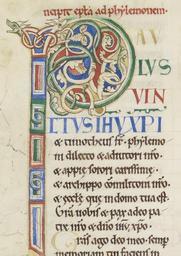 incipit epła ad phylemonem.
PAV
LVS
VIN
CTUS IHV XPI
& timotheus fr̄. phylemo
ni dilecto & adiutori nr̄o.
& appie sorori carissime.
& archippo cōmilitoni nr̄o.
& ecclę quę in domo tua est.
Gr̄a vobis & pax a deo pa
tre nr̄o & dn̄o ihū xp̄o.
ras ago deo meo semp
memoriam tui faciens in